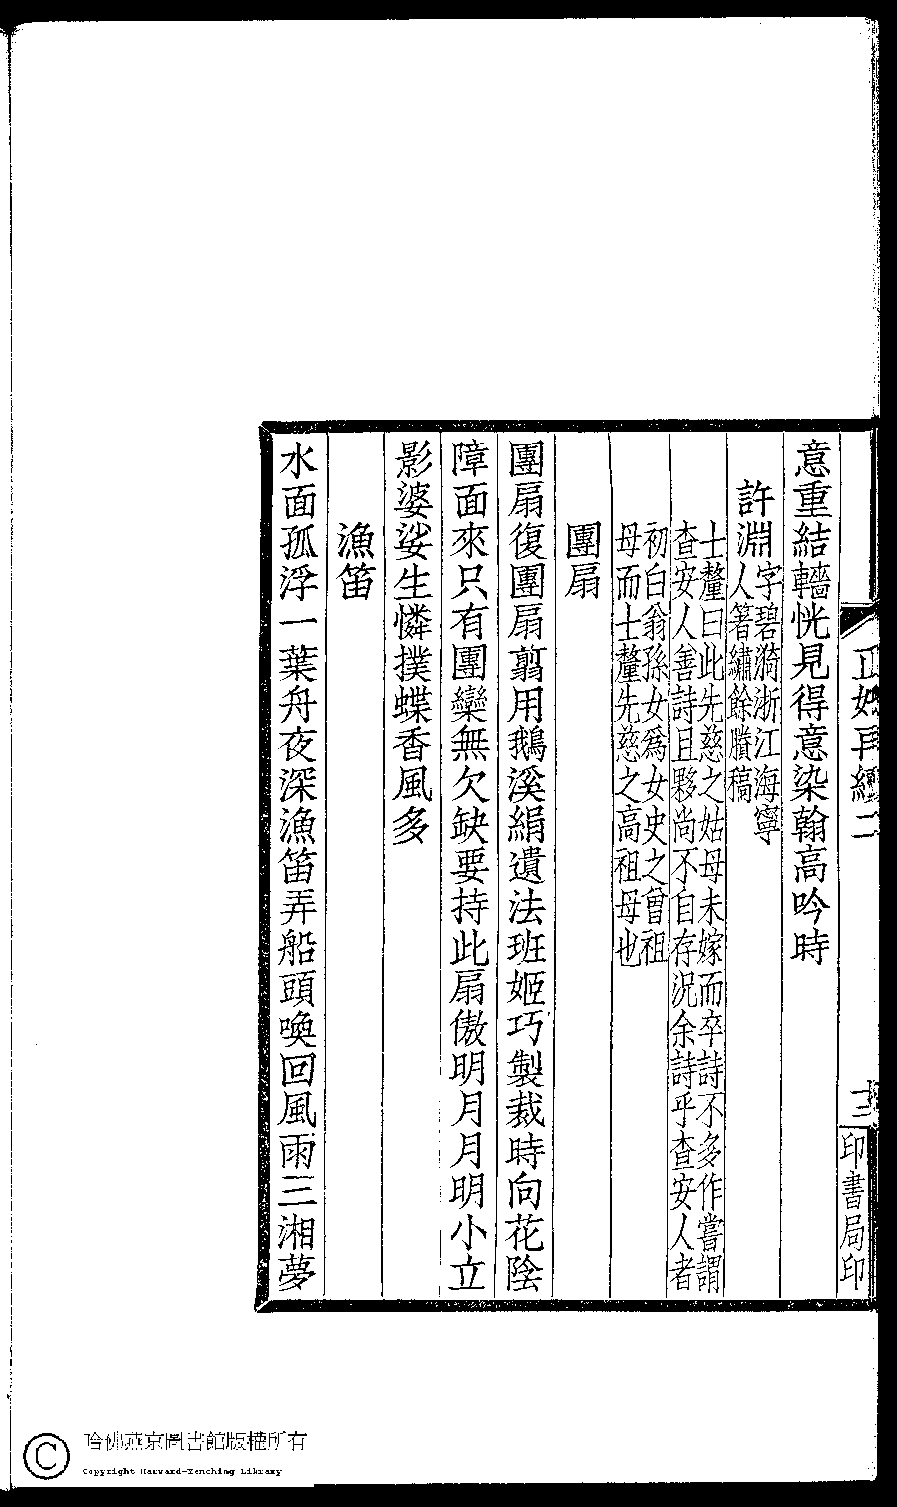 正始再續二
十二
印書局印
意重結轖恍見得意染翰高吟時
許淵字碧漪浙江海寧
人箸繡餘賸稿
士釐曰此先慈之姑母未嫁而卒詩不多作嘗謂
查安人善詩且夥尚不自存況余詩乎查安人者
初白翁孫女爲女史之曾祖
母而士釐先慈之高祖母也
團扇
團扇復團扇翦用鵝溪絹遺法班姬巧製裁時向花陰
障面來只有團欒無欠缺要持此扇傲明月月明小立
影婆娑生憐撲蝶香風多
漁笛
水面孤浮一葉舟夜深漁笛弄船頭喚回風雨三湘夢
哈佛燕京圖書館版權所有
Copyright Harvard-Yenching Library